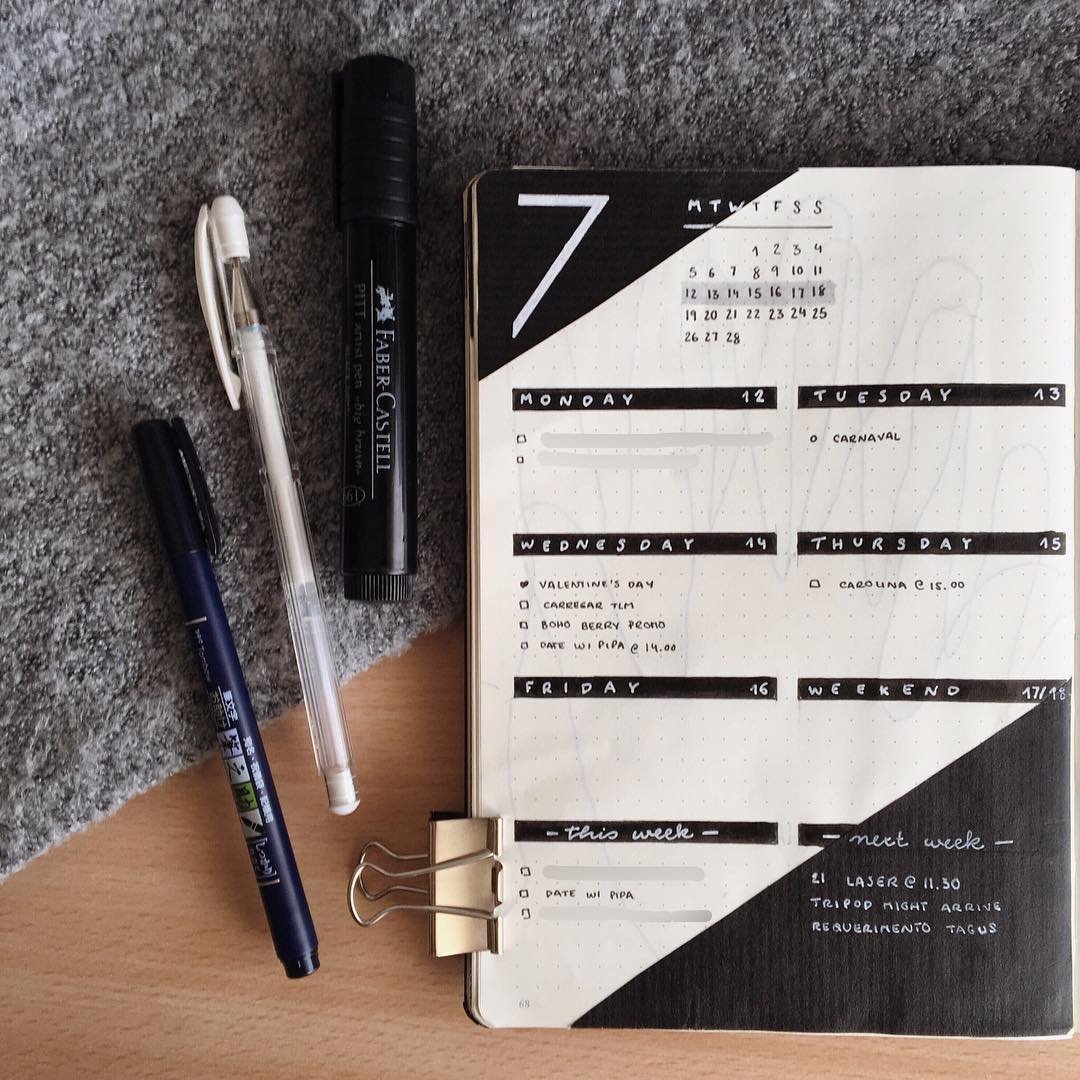 FABER-CASTELL
PITT artist pen
7
M T W T F S S
1 2 3 4
5 6 7 8 9 10 11
12 13 14 15 16 17 18
19 20 21 22 23 24 25
26 27 28
MONDAY 12
TUESDAY 13
O CARNAVAL
WEDNESDAY 14
VALENTINE'S DAY
CARREGAR TLM
BOHO BERRY PROMO
DATE W/ PIPA @ 14.00
THURSDAY 15
CAROLINA @ 15.00
FRIDAY 16
WEEKEND 17/18
- this week -
DATE W/ PIPA
- next week -
21 LASER @ 11.30
TRIPOD MIGHT ARRIVE
REQUERIMENTO TAGUS
68